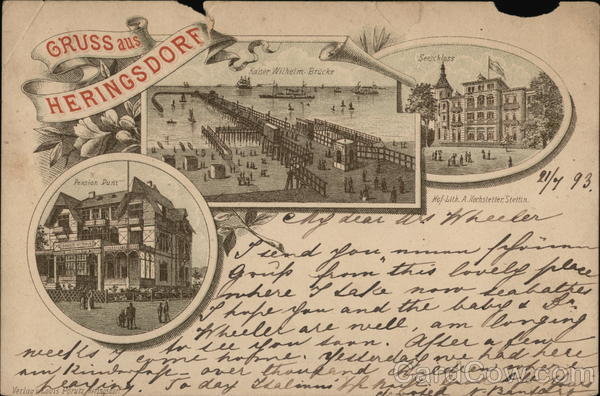 GRUSS aus
HERINGSDORF
Kaiser Wilhelm-Brücke
Seeschloss
Pension Dunt
Hof-Lith. A. Hochstetter, Stettin.
21/7 93.
My dear Mrs Wheeler
I send you
Gruß from this lovely place
where I take now seabathes
I hope you and the baby & Dr
Wheeler are well, am longing
to see you soon. After a few
weeks I come home. Yesterday we had here
ein Kinderfest over thousand
To day
Verlag v. Louis
CardCow.com